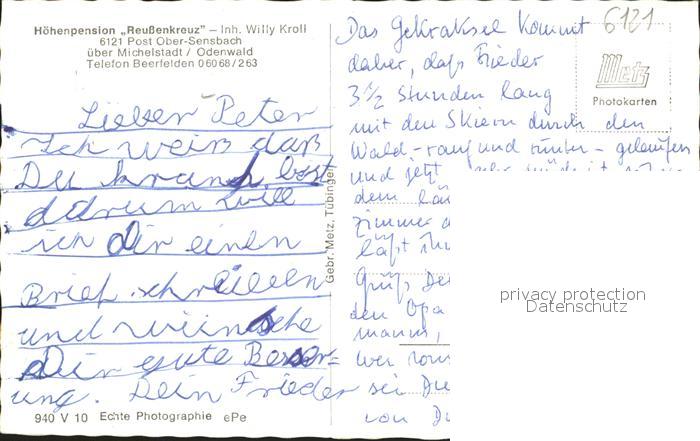 Höhenpension „Reußenkreuz" – Inh. Willy Kroll
6121 Post Ober-Sensbach
über Michelstadt / Odenwald
Telefon Beerfelden 06068/263
Lieber Peter
Ich weiß daß
Du krank bist
darum will
ich dir einen
Brief schreiben
und wünsche
Dir gute Besser=
ung. Dein Frieder
940 V 10 Echte Photographie ePe
Gebr. Metz, Tübingen
Das Gekraksel kommt
daher, daß Frieder
3 1/2 Stunden lang
mit den Skiern durch den
Wald – rauf und runter – gelaufen
und jetzt
dem
Zimmer
läßt
Gruß
den Opa
wer
sei
von
6121
Metz
Photokarten
privacy protection
Datenschutz